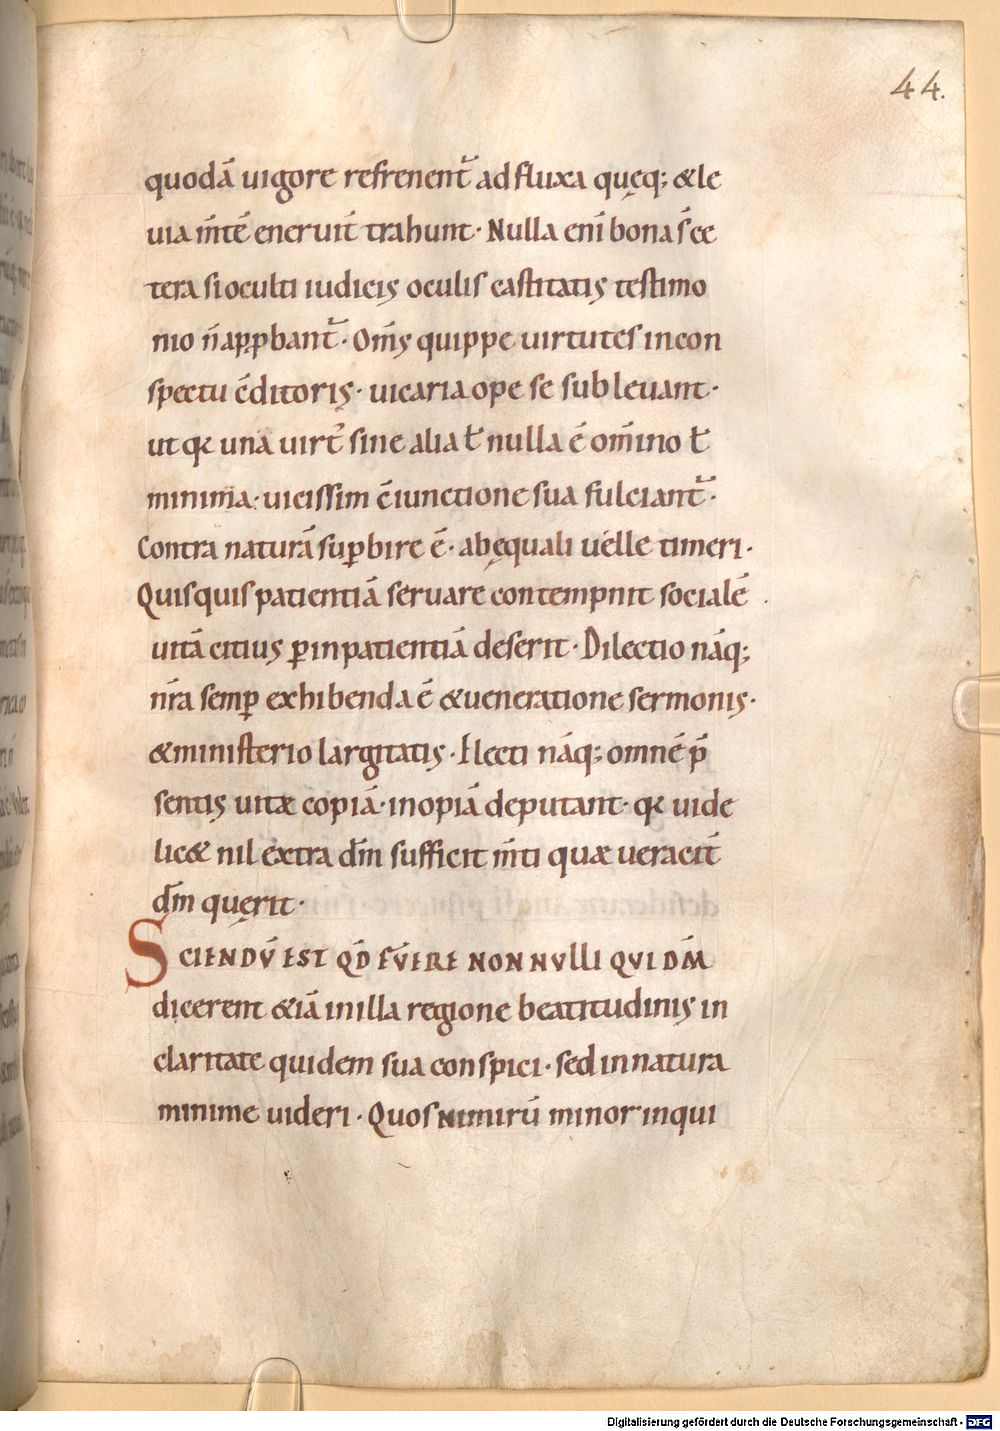 44.
quodā uigore refrenent᷑ ad fluxa quęq; & le
uia m̅te᷑ eneruit᷑ trahunt· Nulla eni̅ bona s̅ ce
tera si oculti iudicis oculis castitatis testimo
nio n̅ app̱bant᷑· Om̅s quippe uirtutes in con
spectu c̅ditoris· uicaria ope se subleuant·
ut qꝛ una uirt᷑ sine alia ł nulla ē om̅ino ł
minima· uicissim c̅iunctione sua fulciant᷑·
Contra naturā sup̱bire ē· ab ęquali uelle timeri·
Quisquis patientiā seruare contempnit socialē
uitā citius p̱ inpatientiā deserit· Dilectio nāq;
nr̅a semp̱ exhibenda ē & ueneratione sermonis·
& ministerio largitatis· Electi nāq; omnē p̅
sentis uitæ copiā· inopiā deputant· qꝛ uide
lic& nil extra dm̅ sufficit m̅ti quæ ueracit᷑
dm̅ quęrit·
SCIENDŪ EST QD̅ FUERE NONNULLI QUI DM̅
dicerent &iā in illa regione beatitudinis in
claritate quidem sua conspici· sed in natura
minime uideri· Quos nimirū minor inqui
Digitalisierung gefördert durch die Deutsche Forschungsgemeinschaft - DFG